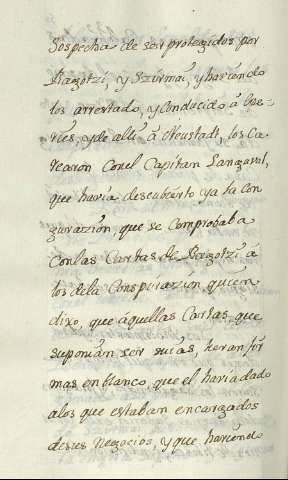 Sospecha de ser protegidos por
Ragotzi, y Szirmai, y haviendo
los arrestado, y conducido á Epe-
ries, y de alli á Neustadt, los Ca-
rearon con el Capitan Langaval,
que havia descubierto ya la Con-
guracion, que se comprobaba
con las Cartas de Ragotzi á
los de la Conspirazion quien
dixo, que aquellas Cartas, que
suponian ser suias, heran fir-
mas en blanco, que el havia dado
a los que estaban encargados
de sus Negocios, y que haviendo